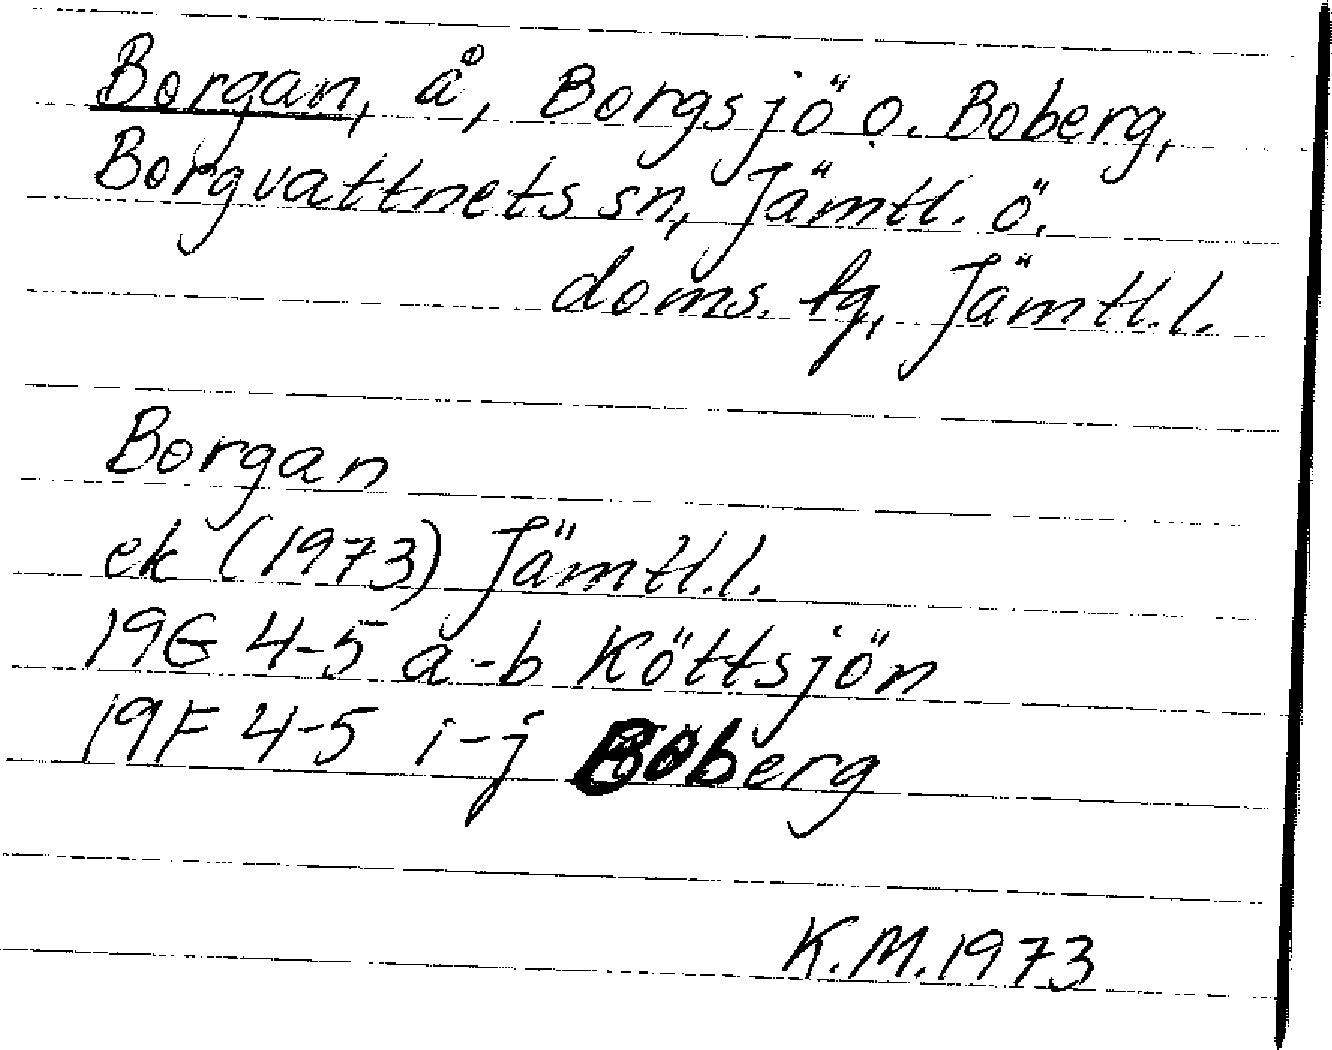 Borgan, å, Borgsjö o. Boberg,
Borgvattnets sn, Jämtl. ö.
doms. tg, Jämtl. l.
Borgan
ek (1973) Jämtl. l.
19G 4-5 a-b Köttsjön
19F 4-5 i-j Boberg
K.M. 1973